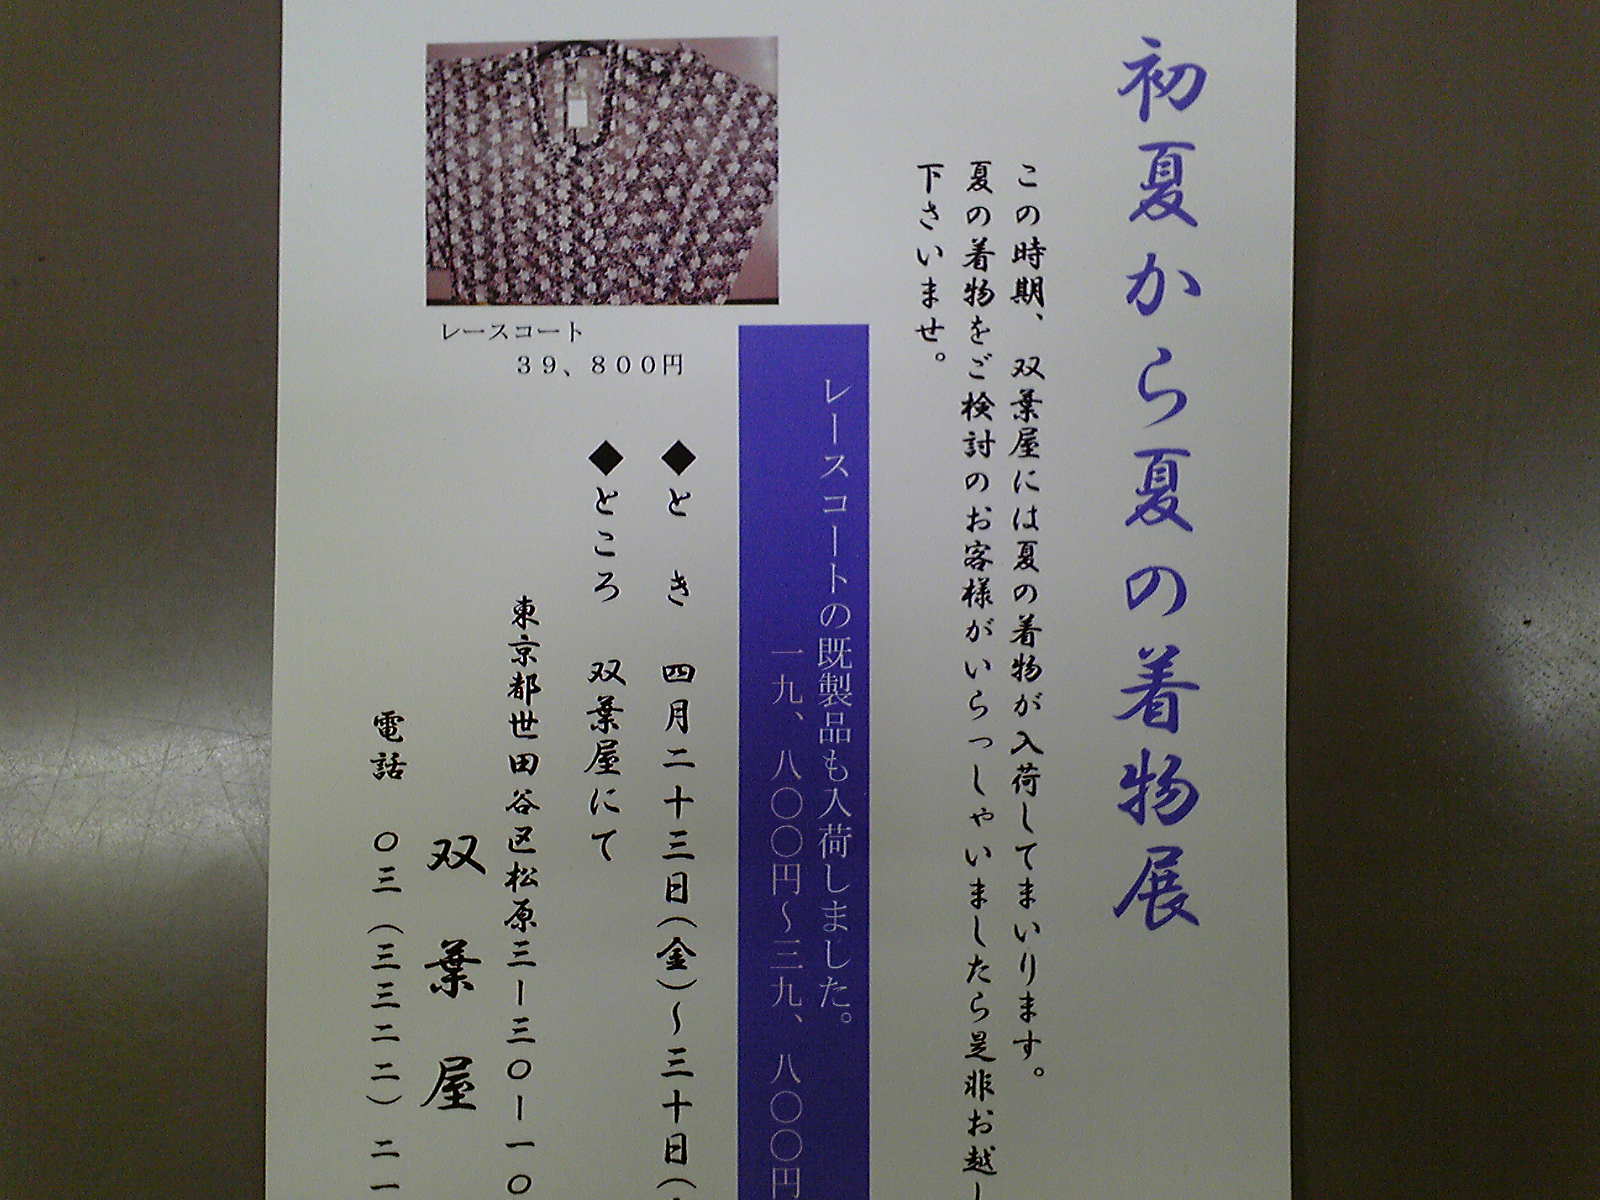 初夏から夏の着物展
この時期、双葉屋には夏の着物が入荷してまいります。
夏の着物をご検討のお客様がいらっしゃいましたら是非お越し
下さいませ。
レースコートの既製品も入荷しました。
一九、八〇〇円～三九、八〇〇円
レースコート
39、800円
◆とき 四月二十三日(金)～三十日(
◆ところ 双葉屋にて
東京都世田谷区松原三ー三〇ー一〇
双葉屋
電話 〇三(三三二二)二一